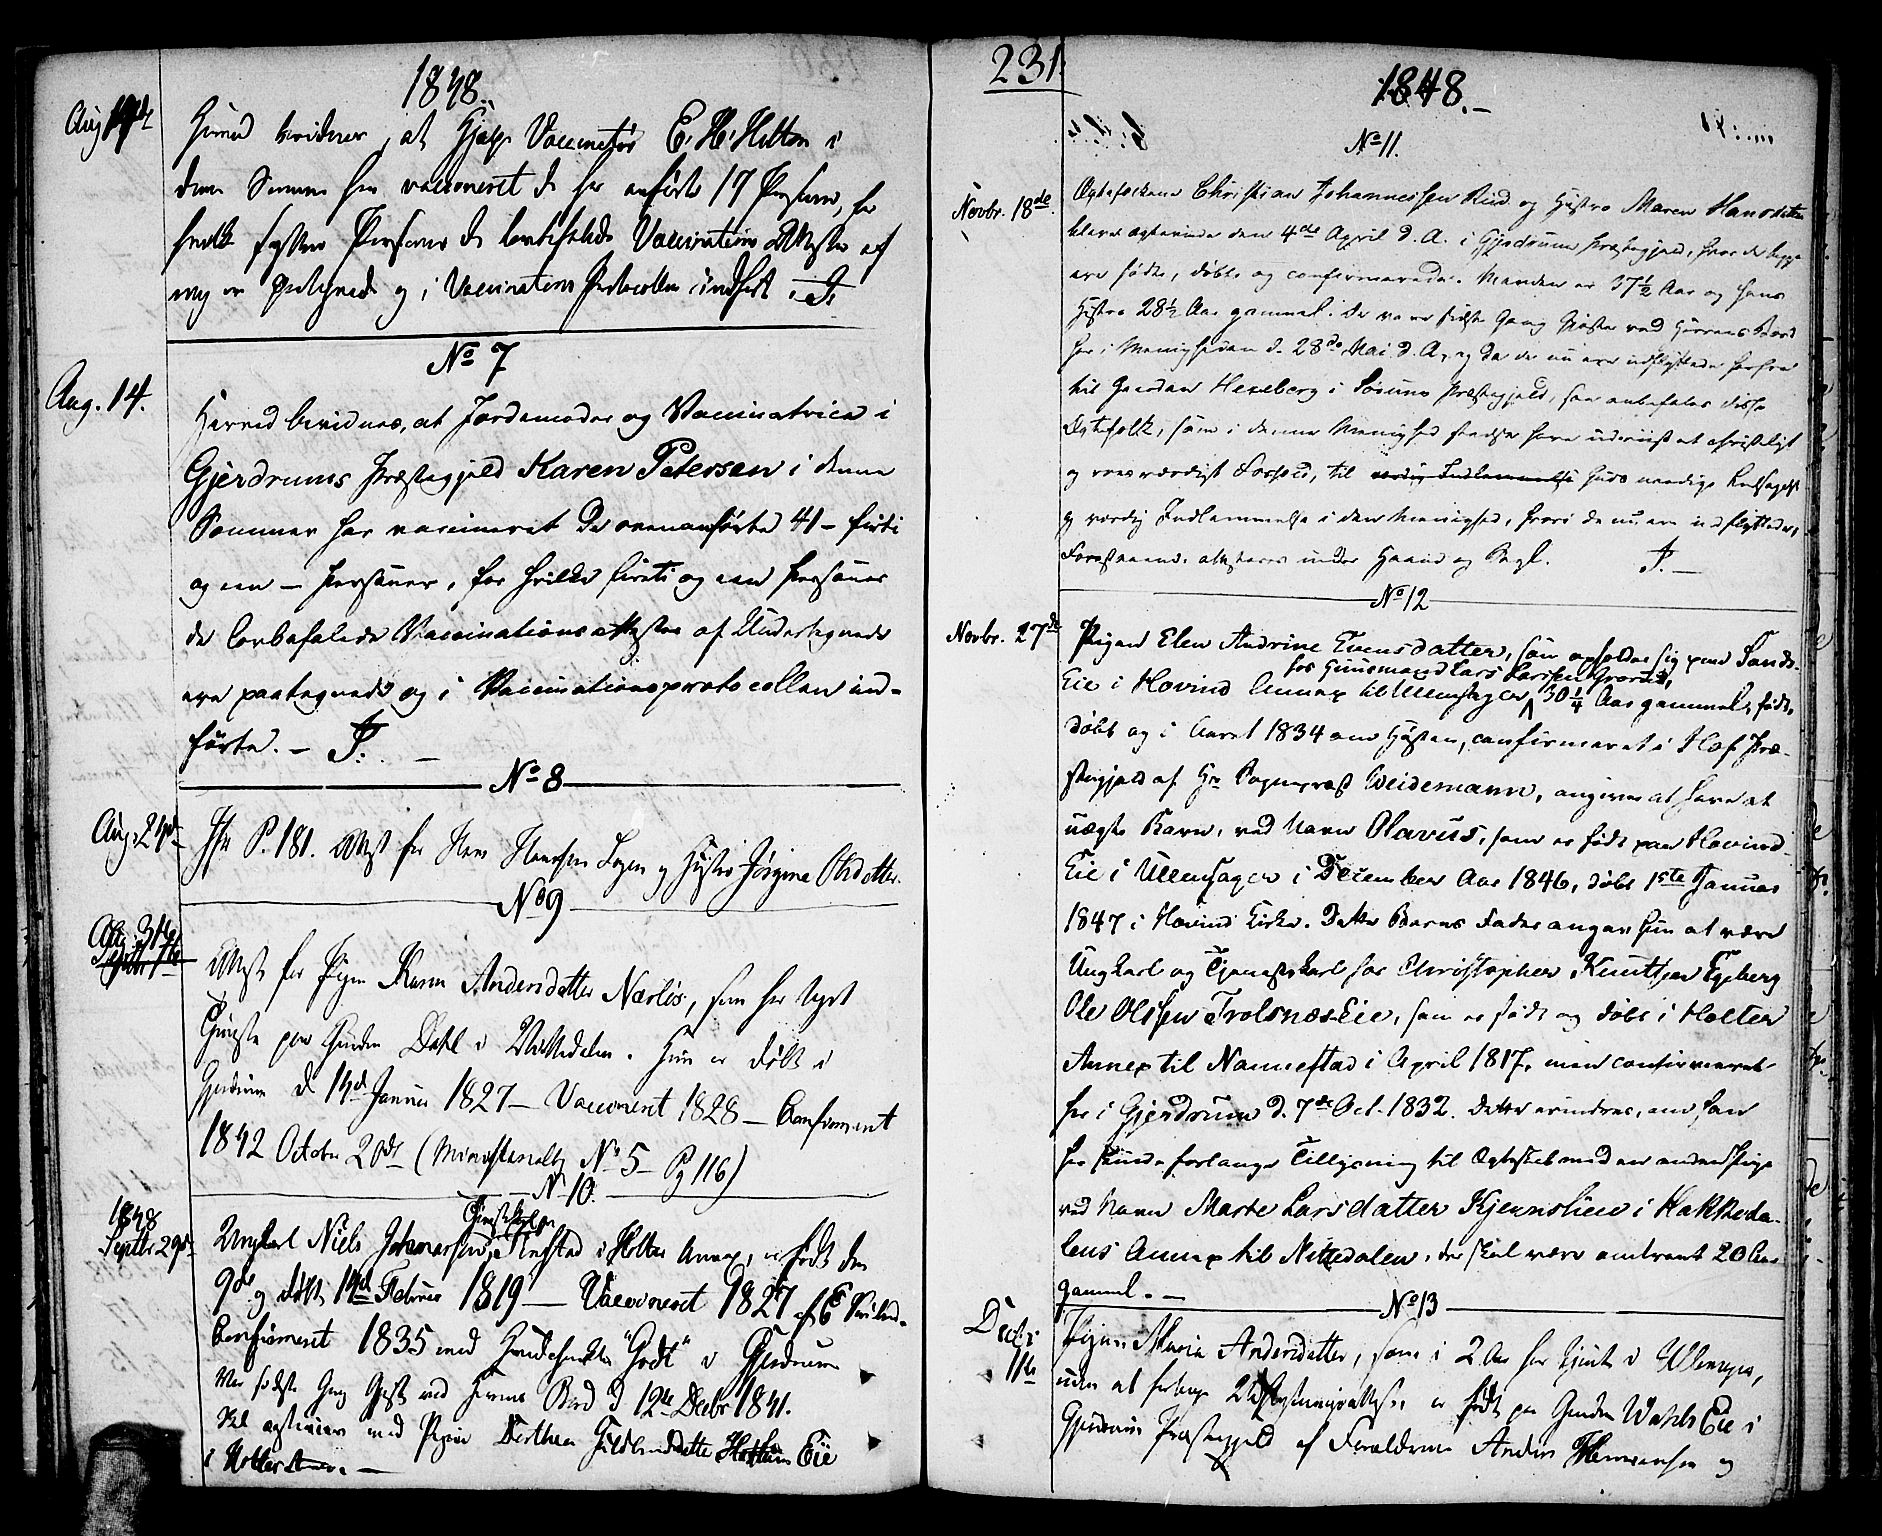 231.
1848.
Aug 14de
Herved bevidnes, at Hjelpe Vaccinatør E. H. Hilton i
denne Sommer har vaccineret de her anførte 17 Personer, for
hvilke sytten Personer de lovbefalede Vaccinations Attester af
mig er paategnede og i Vaccinations Protocollen indført. P.
No 7
Aug. 14.
Herved bevidnes, at Jordemoder og Vaccinatrice i
Gjerdrums Præstegjeld Karen Petersen i denne
Sommer har vaccineret de ovenanførte 41 – firti
og een – Personer, for hvilke firti og een Personer
de lovbefalede Vaccinationsattester af Undertegnede
ere paategnede og i Vaccinationsprotocollen ind-
førte. – P. –
No 8
Aug. 24de
Jfr P. 181. Attest for Hans Hansen og Hustro Jørgine Olsdatter.
No 9
Aug. 31te
Attest for Pigen Karen Andersdatter Nærløs, som har tagt
Tjeneste paa Gaarden Dahl i Nittedalen. Hun er døbt i
Gjerdrum d 14de Januar 1827 – Vaccineret 1828 – Confirmeret
1842 October 2den (Ministerialb. No 5 – Pg 116)
No 10.
1848
Septbr 29de
Tjenestekarl paa
Ungkarl Niels Johannessen i Holter Annex, er født den
9de og døbt 14de Februar 1819 – Vaccineret 1827 af E
Confirmeret 1835 med Hovedcharakter "Godt" i Gjerdrum
Var sidste Gang Gjest ved Herrens Bord d 12te Decbr 1841.
Skal ægtevies med Pigen Dorthea Guldbrandsdatter Eie
i Holter Annex. –
1848. –
No 11.
Novbr. 18de.
Ægtefolkene Christian Johannessen Rud og Hustro Maren Hansdatter
bleve ægteviede den 4de April d. A. i Gjerdrums Præstegjeld, hvor de begge
ere fødte, døbte og confirmerede. Manden er 37½ Aar og hans
Hustro 28½ Aar gammel. De vare sidste Gang Gjester ved Herrens Bord
her i Menigheden d. 28de Mai d. A., og da de nu ere udflyttede herfra
til Gaarden Hexeberg i Sørums Præstegjeld, saa anbefales disse
Ægtefolk, som i denne Menighed stedse have udviist et christeligt
og roesværdigt Forhold, til værdig Indlemmelse Guds naadige Ledsagelse
og værdig Indlemmelse i den Menighed, hvori de nu ere indflyttede,
Forestaaende attesteres under Haand og Segl. P. –
No 12
Novbr. 27de
Pigen Elen Andrine Evensdatter, som opholder sig paa Sands-
hos Huusmand Lars Larsen Grorud,
Eie i Hovind Annex til Ullensager, 30¼ Aar gammel, født,
døbt og i Aaret 1834 om Høsten, confirmeret i Hof Præ-
stegjeld af Hr Sogneprest Weidemann, angives at have et
uægte Barn, ved Navn Olavus, som er født paa Hovind
Eie i Ullensager i December Aar 1846, døbt 1ste Januar
1847 i Hovind Kirke. Dette Barns Fader angav hun at være
Ungkarl og Tjenestekarl hos Christopher Knutsen Egeberg
Ole Olsen Trolsnæs-Eie, som er født og døbt i Holter
Annex til Nannestad i April 1817, men confirmeret
her i Gjerdrum d. 7de Oct. 1832. Dette erindres, om han
her skulde forlange Tillysning til Ægteskab med en anden Pige
ved Navn Marte Larsdatter Kjernslien i Hakkeda-
lens Annex til Nittedalen, der skal være omtrent 20 Aar
gammel. –
No 13
Decbr
11te
Pigen Maria Andersdatter, som i 2 Aar har tjent i Ullensager,
uden at forlange Udflytningsattest, er født paa Gaarden Wahls Eie i
Gjerdrums Præstegjeld af Forældrene Anders og